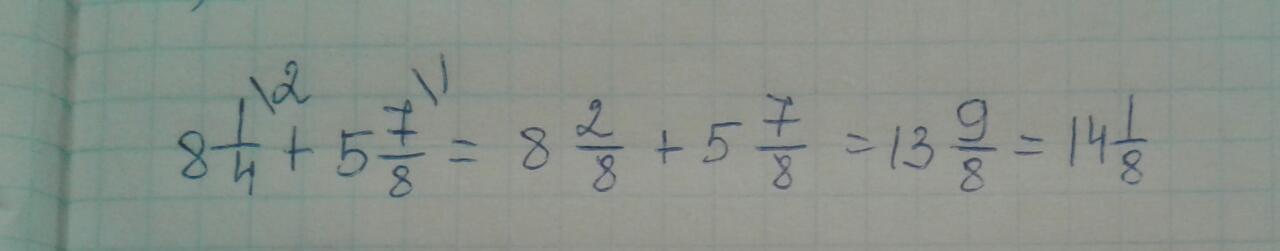 8 1/4 \2 + 5 7/8 \1 = 8 2/8 + 5 7/8 = 13 9/8 = 14 1/8